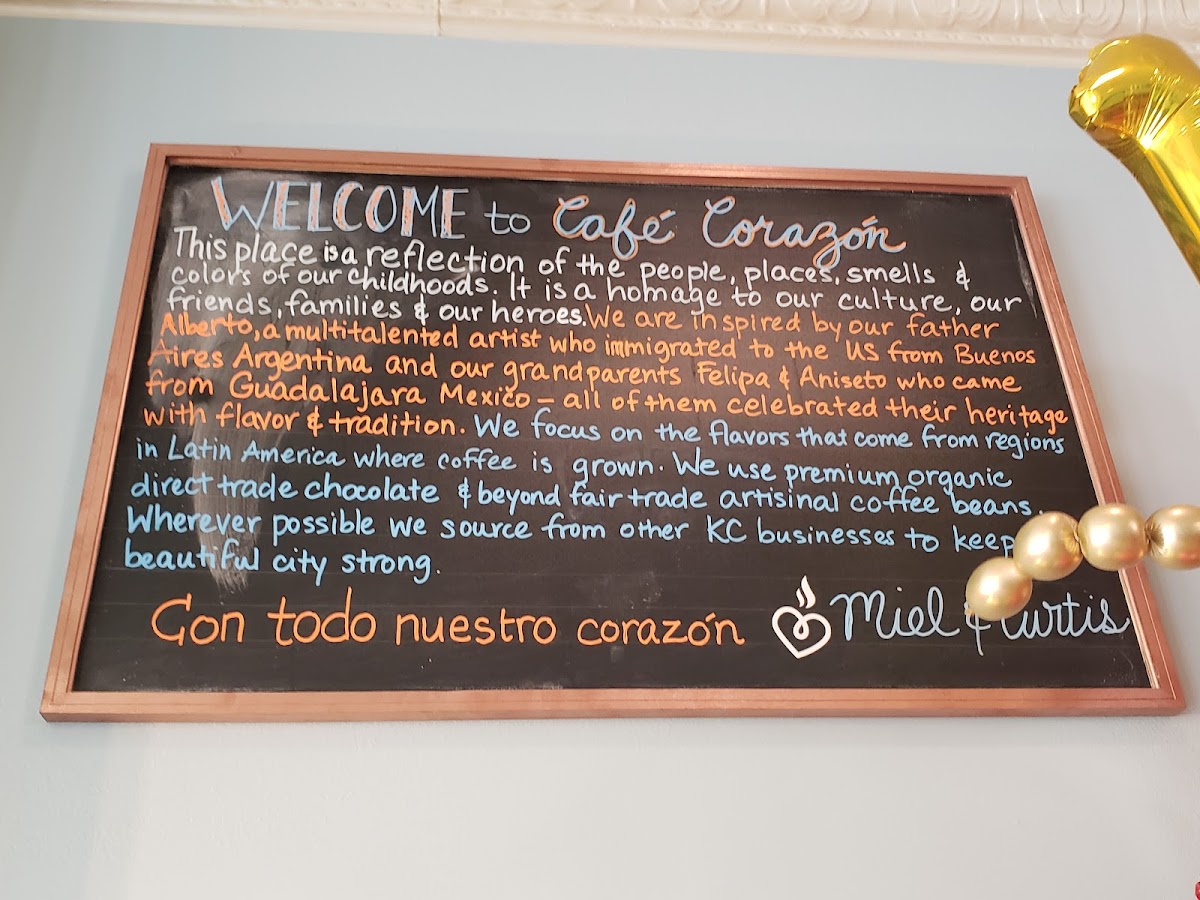 WELCOME to Café Corazón
This place is a reflection of the people, places, smells &
colors of our childhoods. It is a homage to our culture, our
friends, families & our heroes. We are inspired by our father
Alberto, a multitalented artist who immigrated to the US from Buenos
Aires Argentina and our grandparents Felipa & Aniseto who came
from Guadalajara Mexico — all of them celebrated their heritage
with flavor & tradition. We focus on the flavors that come from regions
in Latin America where coffee is grown. We use premium organic
direct trade chocolate & beyond fair trade artisinal coffee beans.
Wherever possible we source from other KC businesses to keep
beautiful city strong.
Con todo nuestro corazón Miel & Curtis